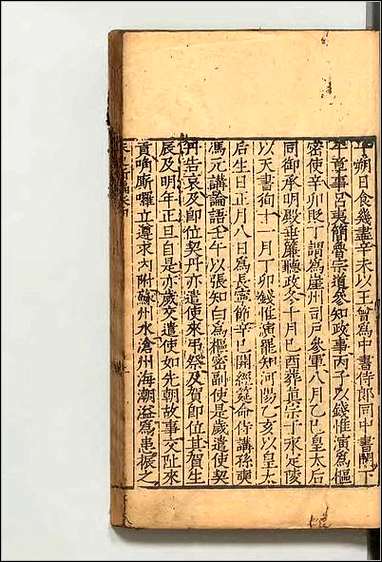 朔日食幾盡辛未以王曾爲中書侍郎同中書門下
平章事呂夷簡魯宗道參知政事丙子以錢惟演爲樞
密使辛卯貶丁謂爲崖州司戶參軍八月乙巳皇太后
同御承明殿垂簾聽政冬十月己酉葬眞宗于永定陵
以天書徇十一月丁卯錢惟演罷知河陽乙亥以皇太
后生日正月八日爲長寧節辛巳開經筵命侍講孫奭
馮元講論語壬午以張知白爲樞密副使是歲遣使契
丹告哀及即位契丹亦遣使來弔祭及賀即位其賀生
辰及明年正旦自是亦歲交遣使如先朝故事交阯來
貢唃廝囉立遵求內附蘇州水滄州海潮溢爲患振之